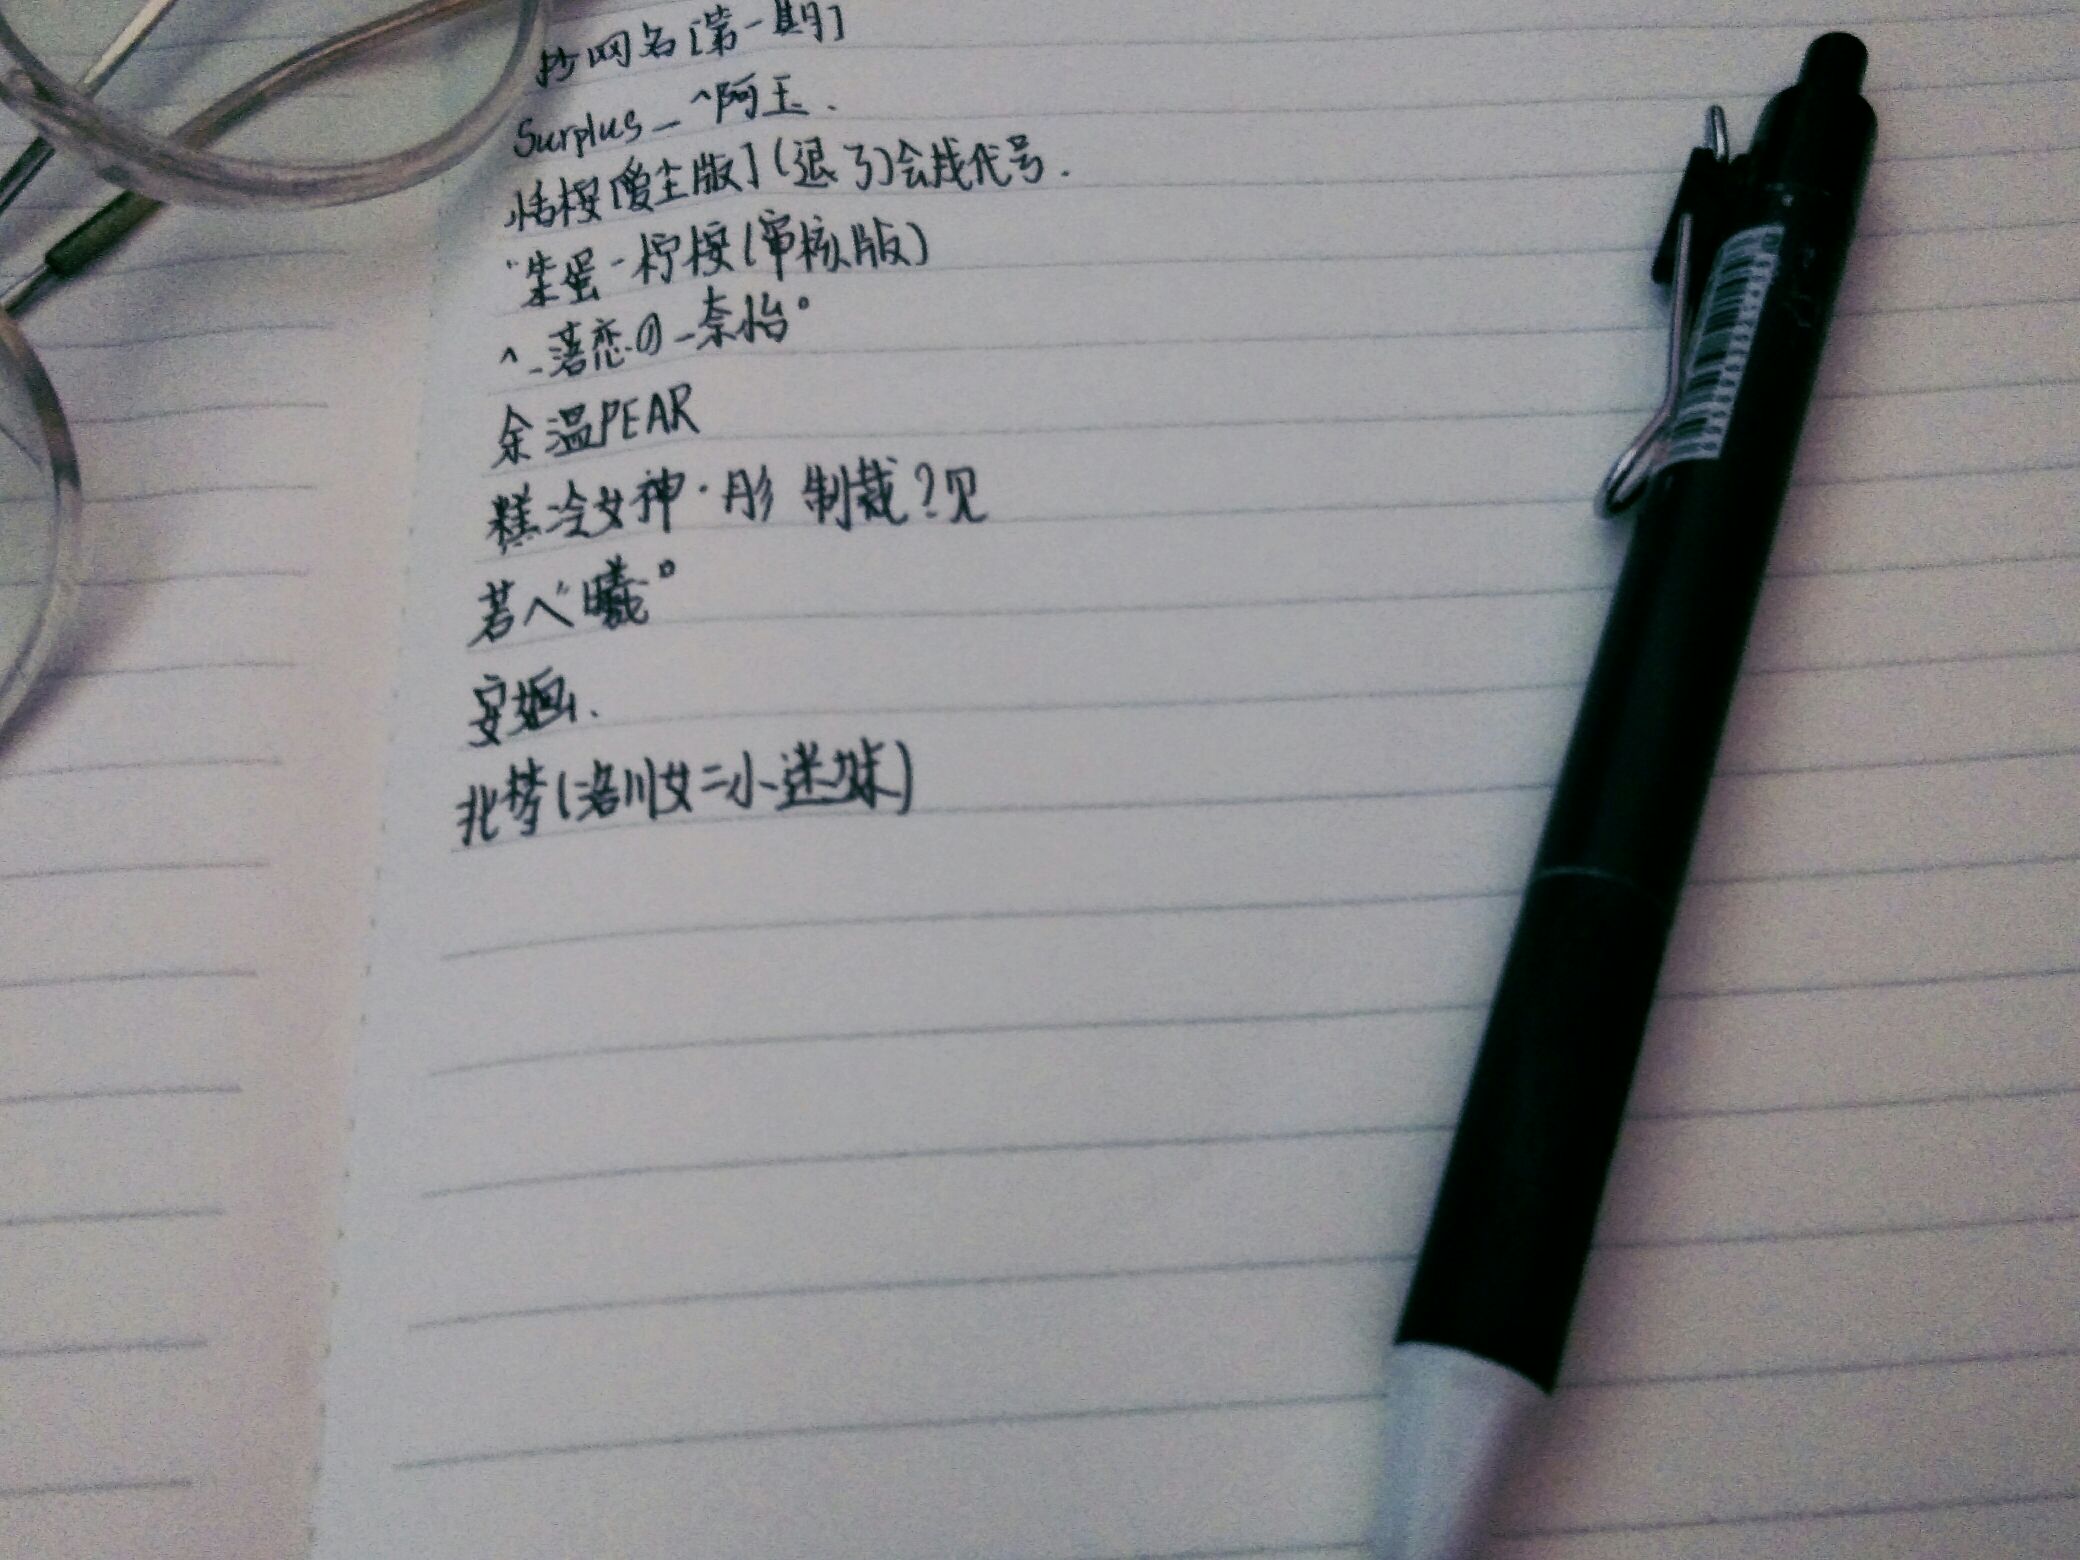 抄网名[第一期]
Surplus_^阿玉.
恬桉[爱尘版](退了)会战代号.
"柴蛋-柠桉(审核版)
^_落恋の_奈怡°
余温PEAR
糕冷女神·彤 制裁?见
若ヘ"曦°
安婳.
北梦(洛川女二小迷妹)